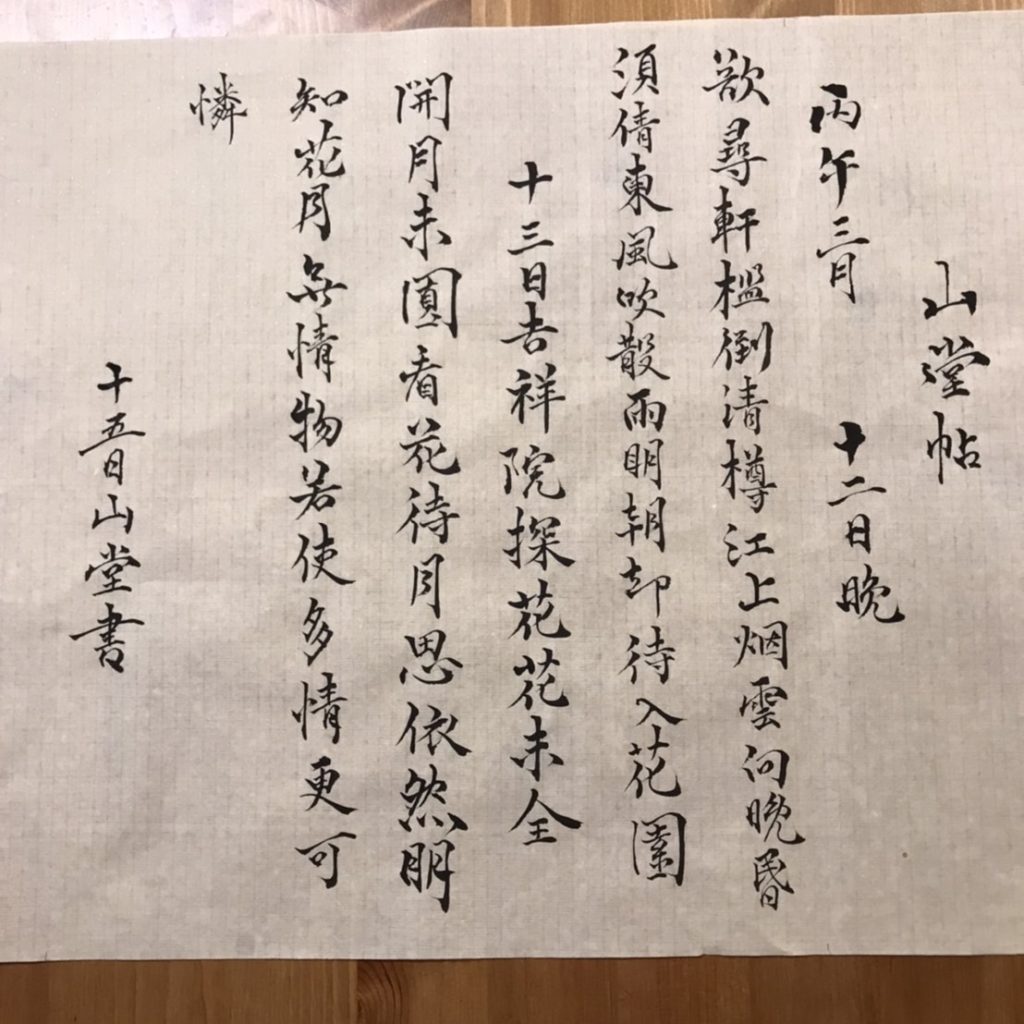 山堂帖
丙午三月　十二日晚
欲尋軒檻倒清樽江上烟雲向晚昏
須倩東風吹散雨明朝却待入花園
十三日吉祥院探花花未全
開月未圓看花待月思依然明
知花月無情物若使多情更可
憐
十五日山堂書